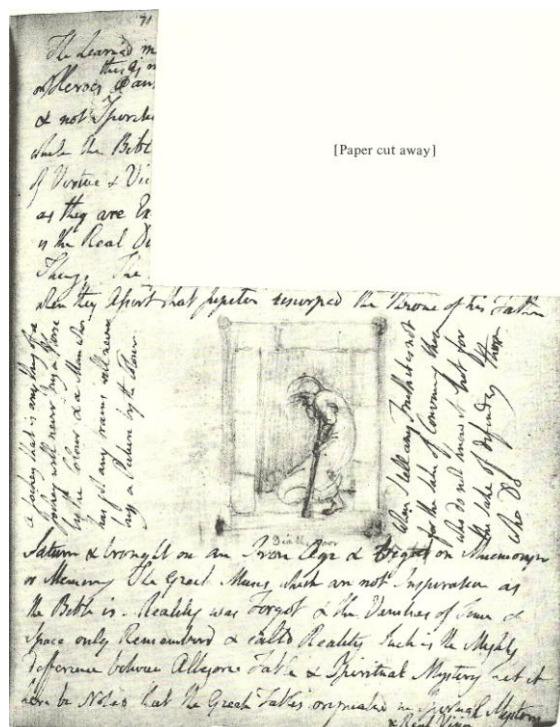 71
[Paper cut away]
The Learned m
this is n
or Heroes
& not Inspirat
while the Bibl
of Virtue & Vic
as they are Ex
is the Real Di
Things The
when they Assert that Jupiter usurped the Throne of his Father
a Jockey that is any thing of a
Jockey will never buy a Horse
by the Colour & a Man who
has got any brains will never
buy a Picture by the Colour
When I tell any Truth it is not
for the sake of Convincing those
who do not know it but for
the sake of defending those
who Do
Deaths Door
Saturn & brought on an Iron Age & Begat on Mnemosyne
or Memory The Greek Muses which are not Inspiration as
the Bible is. Reality was Forgot & the Vanities of Time &
Space only Rememberd & calld Reality Such is the Mighty
difference between Allegoric Fable & Spiritual Mystery Let it
here be Noted that the Greek Fables originated in Spiritual Mystery
& Real Vision